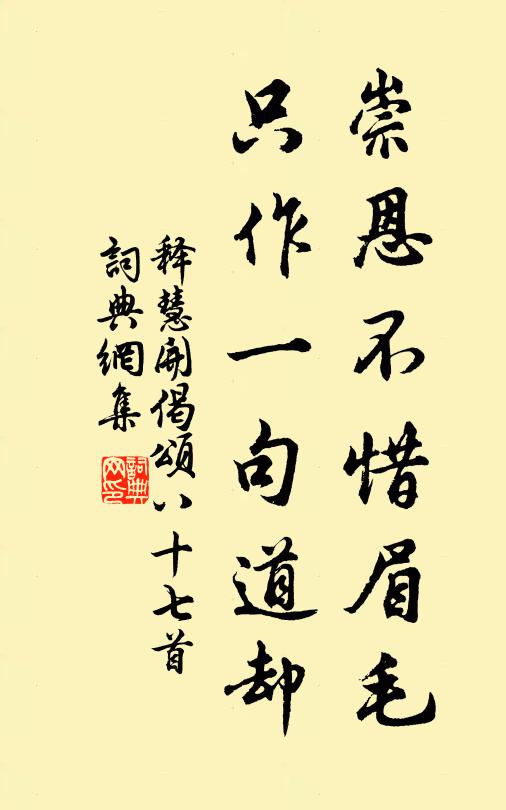 崇恩不惜眉毛
只作一句道却
释慧開偈頌八十七首
詞典網集
詞典
网印